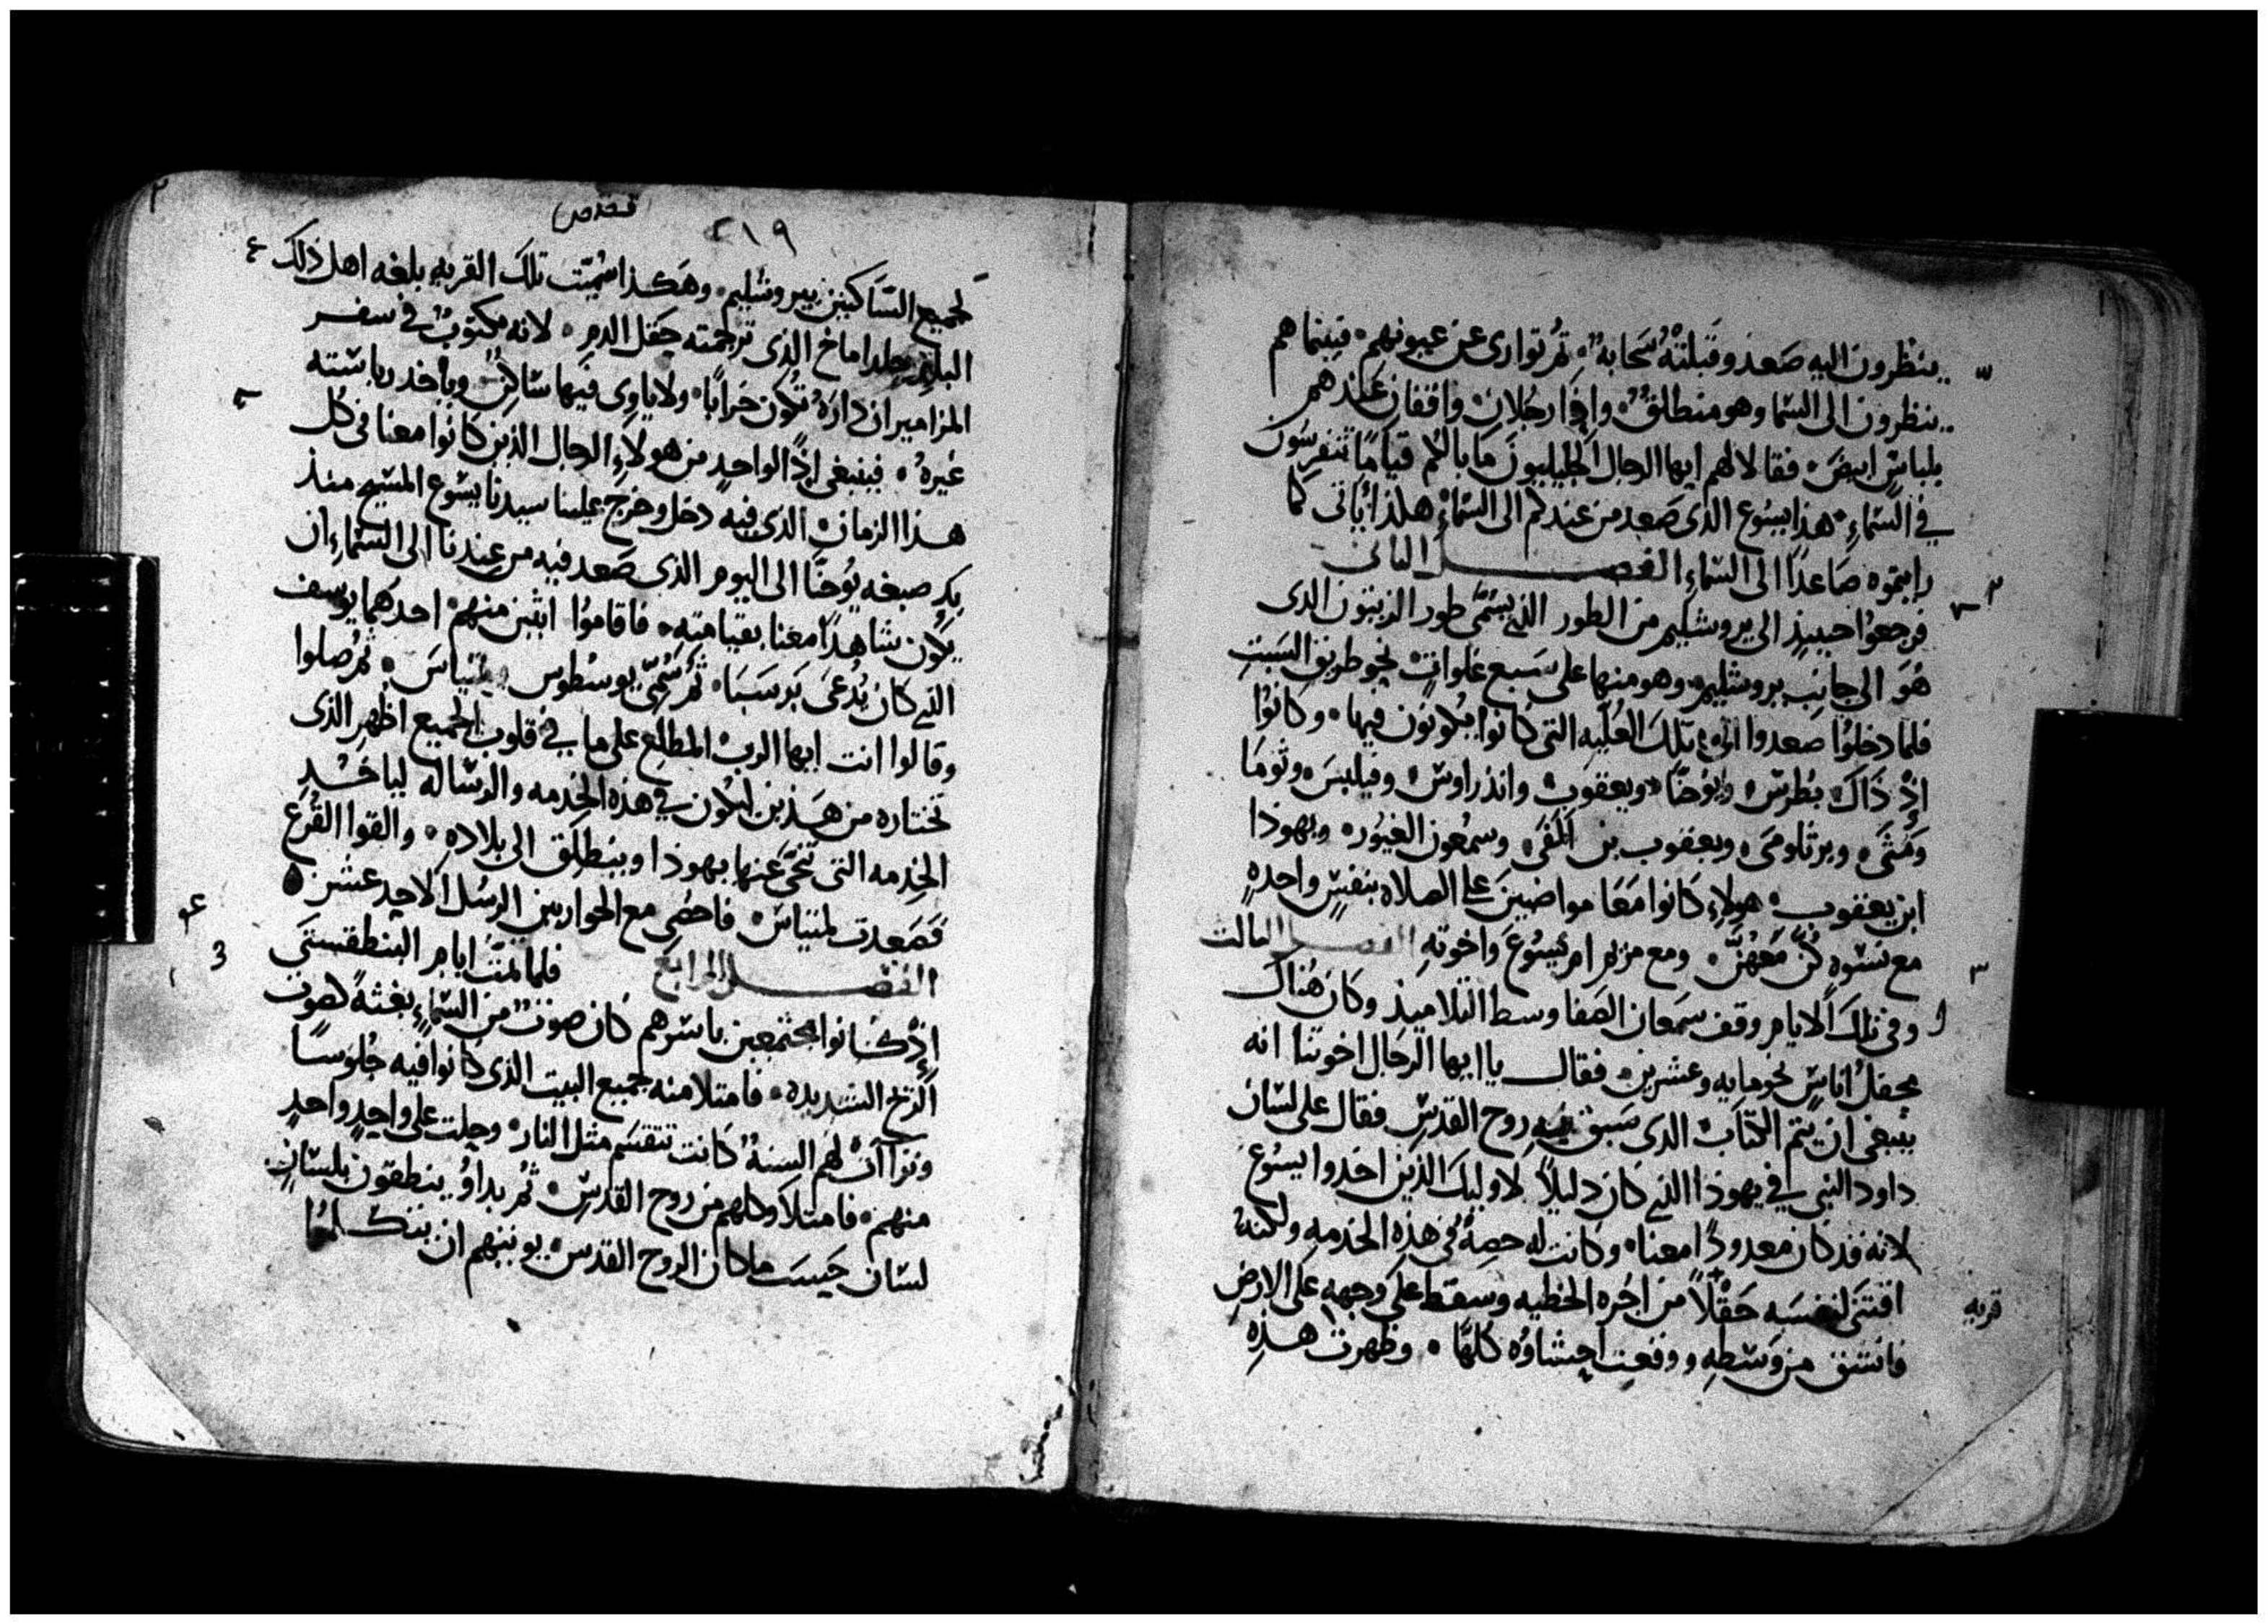 ينظرون اليه صعد وقبلته سحابه ثم توارى عن عيونهم فبينما هم
ينظرون الى السما وهو منطلق وافا رجلان واقفان عندهم
بلباس ابيض فقالا لهم ايها الرجال الجليليون ما بالكم قياما تتفرسون
في السماء هذا يسوع الذى صعد من عندكم الى السماء هكذا ياتى كما
رايتموه صاعدا الى السماء الفصل الثانى
فرجعوا حينيذ الى يروشليم من الطور الذي يسمى طور الزيتون الذى
هو الى جانب يروشليم وهو منها على سبع غلوات نحو طريق السبت
فلما دخلوا صعدوا الى تلك العليه التى كانوا يكونون فيها وكانوا
اذ ذاك بطرس ويوحنا ويعقوب واندراوس وفيلبس وثوما
ومتى وبرتلومى ويعقوب بن الفى وسمعون الغيور ويهوذا
ابن يعقوب هولاء كانوا معا مواضبين على الصلاه بنفس واحده
مع نسوه كن معهن ومع مريم ام يسوع واخوته الفصل الثالث
وفى تلك الايام وقف سمعان الصفا وسط التلاميذ وكان هناك
محفل اناس نحو مايه وعشرين فقال يا ايها الرجال اخوتنا انه
ينبغى ان يتم الكتاب الذى سبق فيه روح القدس فقال على لسان
داود النبى في يهوذا الذي كان دليلا لاوليك الذين اخدوا يسوع
لانه قد كان معدودا معنا وكانت له حصة فى هذه الخدمه ولكنه
اقتنى لنفسه حقلا من اجره الخطيه وسقط على وجهه على الارض
قريه
فانشق من وسطه ووقعت احشاوه كلها وظهرت هذه
٢١٩
لجميع الساكنين بيروشليم وهكذا سميت تلك القريه بلغه اهل ذلك
البلد حلداماخ الذى ترجمته حقل الدم لانه مكتوب في سفر
المزامير ان داره تكون خرابا ولا ياوى فيها ساكن وياخد رياسته
غيره فينبغى اذا لواحد من هولاء الرجال الذين كانوا معنا فى كل
هذا الزمان الذى فيه دخل وخرج علينا سيدنا يسوع المسيح منذ
بكر صبغه يوحنا الى اليوم الذى صعد فيه من عندنا الى السماء ان
يكون شاهدا معنا بقيامته فاقاموا اثنين منهم احدهما يوسف
الذي كان يدعى برسبا ثم سمى يوسطوس متياس ثم صلوا
وقالوا انت ايها الرب المطلع على ما في قلوب الجميع اظهر الذى
تختاره من هذين ليكون في هذه الخدمه والرساله لياخد
الخدمه التى تنحى عنها يهوذا وينطلق الى بلاده والقوا القرع
فصعدت لمتياس فاحصى مع الحواريين الرسل الاحد عشر
الفصل الرابع فلما تمت ايام البنطقسطى
اذ كانوا مجتمعين باسرهم كان صوت من السماء بغتة كصوت
الريح الشديده فامتلا منه جميع البيت الذى كانوا فيه جلوسا
وتراات لهم السنة كانت تنقسم مثل النار وحلت على واحد واحد
منهم فامتلاوا كلهم من روح القدس ثم بداوا ينطقون بلسان
لسان حيسب ما كان الروح القدس يوتيهم ان يتكلموا